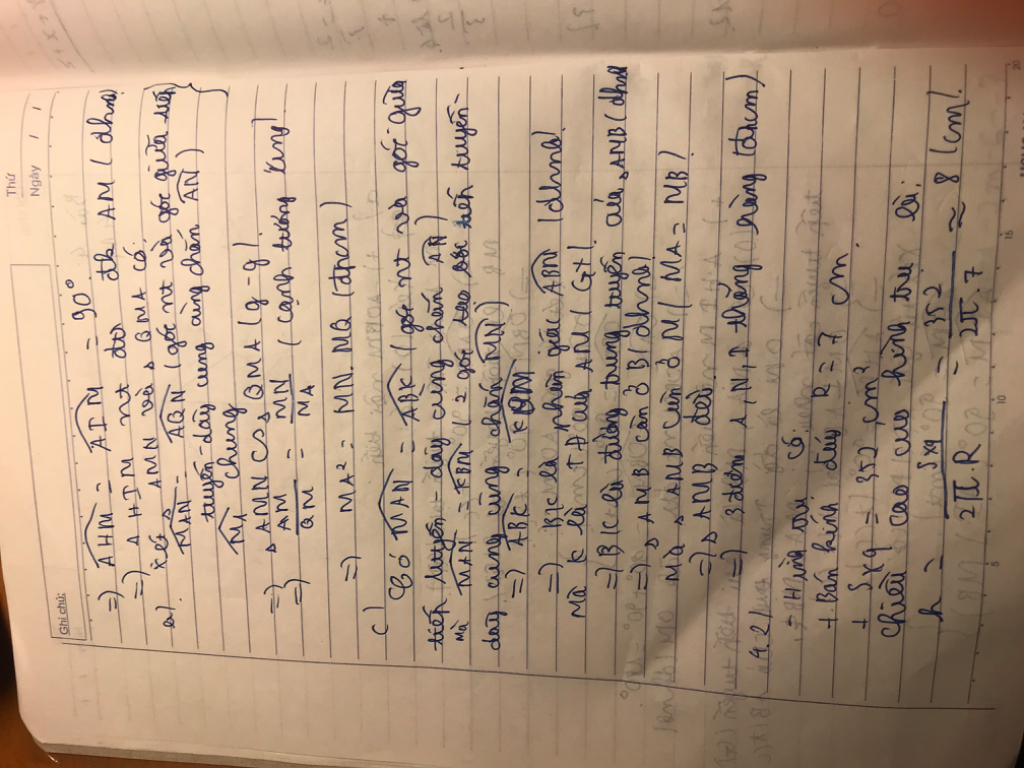 Thứ
Ngày / /
Ghi chú:
=) AHM = ADM = 90°
=) ◇ AHDM nt đtr đk AM (đhnb)
b). Xét △ AMN và △ QMA có
MAN = AQN (góc nt và góc giữa tiếp
tuyến - dây cung cùng chắn AN)
M1 chung
=) △ AMN ᔕ △ QMA (g-g)
=) AM / QM = MN / MA (cạnh tương ứng)
=) MA² = MN. MQ (đpcm)
c)
Có MAN = ABK (góc nt và góc giữa
tiếp tuyến - dây cùng chắn AN)
mà MAN = KBM (2 góc tạo bởi tiếp tuyến -
dây cung cùng chắn MN)
=) ABK = KBM
=) BK là phân giác ABM (đhnb)
Mà K là TĐ của AM (Gt)
=) BK là đường trung tuyến của △ AMB (đhnb)
=) △ AMB cân ở B (đhnb)
Mà △ AMB cân ở M (MA = MB)
=) △ AMB đều
=) 3 điểm A, N, D thẳng hàng (đpcm)
4.2/
Hình trụ có
+ Bán kính đáy R = 7 cm
+ Sxq = 352 cm²
Chiều cao của hình trụ là:
h = Sxq / 2π.R = 352 / 2π.7 ≈ 8 (cm).
5
10
15
20